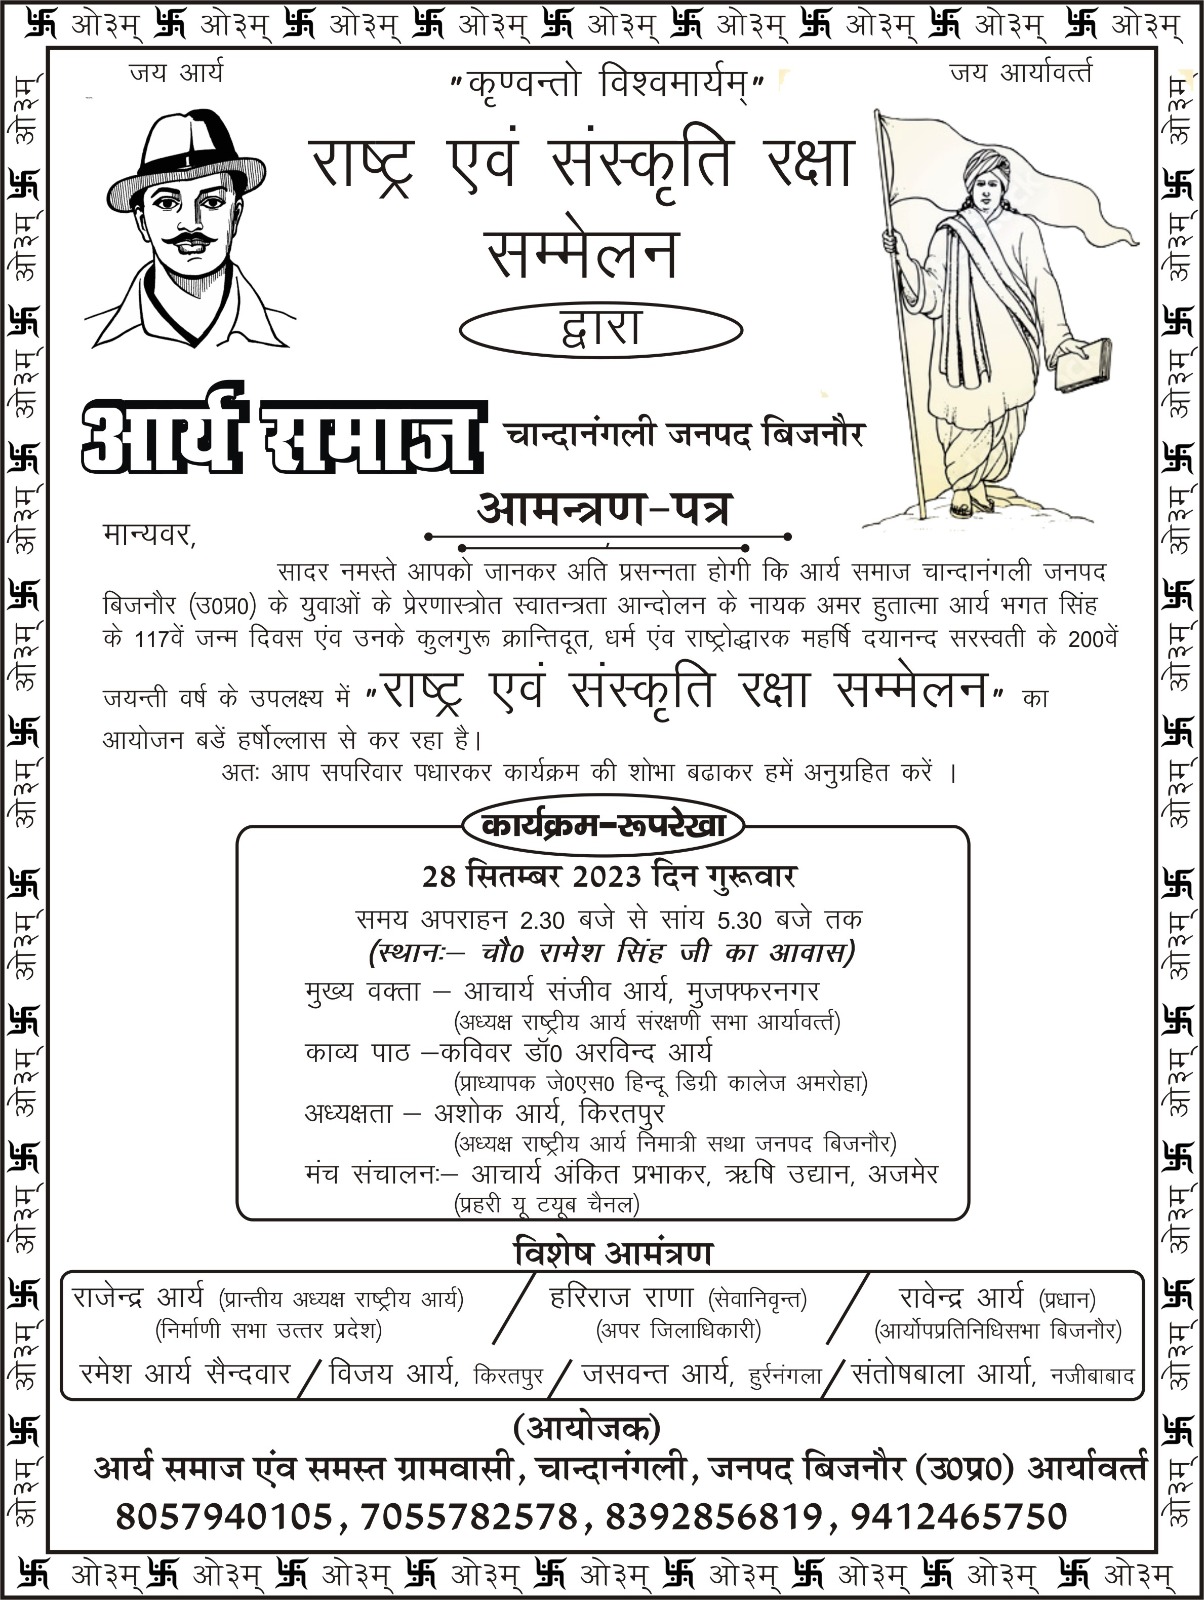 ओ३म् ओ३म् ओ३म् ओ३म् ओ३म् ओ३म् ओ३म् ओ३म् ओ३म्
जय आर्य
"कृण्वन्तो विश्वमार्यम्"
जय आर्यावर्त्त
राष्ट्र एवं संस्कृति रक्षा
सम्मेलन
द्वारा
आर्य समाज चान्दानंगली जनपद बिजनौर
आमन्त्रण-पत्र
मान्यवर,
सादर नमस्ते आपको जानकर अति प्रसन्नता होगी कि आर्य समाज चान्दानंगली जनपद
बिजनौर (उ0प्र0) के युवाओं के प्रेरणास्त्रोत स्वातन्त्रता आन्दोलन के नायक अमर हुतात्मा आर्य भगत सिंह
के 117वें जन्म दिवस एंव उनके कुलगुरू क्रान्तिदूत, धर्म एंव राष्ट्रोद्धारक महर्षि दयानन्द सरस्वती के 200वें
जयन्ती वर्ष के उपलक्ष्य में "राष्ट्र एवं संस्कृति रक्षा सम्मेलन" का
आयोजन बडें हर्षोल्लास से कर रहा है।
अतः आप सपरिवार पधारकर कार्यक्रम की शोभा बढाकर हमें अनुग्रहित करें ।
कार्यक्रम-रूपरेखा
28 सितम्बर 2023 दिन गुरूवार
समय अपराहन 2.30 बजे से सांय 5.30 बजे तक
(स्थानः– चौ0 रामेश सिंह जी का आवास)
मुख्य वक्ता – आचार्य संजीव आर्य, मुजफ्फरनगर
(अध्यक्ष राष्ट्रीय आर्य संरक्षणी सभा आर्यावर्त्त)
काव्य पाठ –कविवर डॉ0 अरविन्द आर्य
(प्राध्यापक जे0एस0 हिन्दू डिग्री कालेज अमरोहा)
अध्यक्षता – अशोक आर्य, किरतपुर
(अध्यक्ष राष्ट्रीय आर्य निमात्री सथा जनपद बिजनौर)
मंच संचालनः– आचार्य अंकित प्रभाकर, ऋषि उद्यान, अजमेर
(प्रहरी यू टयूब चैनल)
विशेष आमंत्रण
राजेन्द्र आर्य (प्रान्तीय अध्यक्ष राष्ट्रीय आर्य) / हरिराज राणा (सेवानिवृन्त) / रावेन्द्र आर्य (प्रधान)
(निर्माणी सभा उत्तर प्रदेश) (अपर जिलाधिकारी) (आर्योपप्रतिनिधिसभा बिजनौर)
रमेश आर्य सैन्दवार / विजय आर्य, किरतपुर / जसवन्त आर्य, हुर्रनंगला / संतोषबाला आर्या, नजीबाबाद
(आयोजक)
आर्य समाज एंव समस्त ग्रामवासी, चान्दानंगली, जनपद बिजनौर (उ0प्र0) आर्यावर्त्त
8057940105, 7055782578, 8392856819, 9412465750
ओ३म् ओ३म् ओ३म् ओ३म् ओ३म् ओ३म् ओ३म् ओ३म् ओ३म्